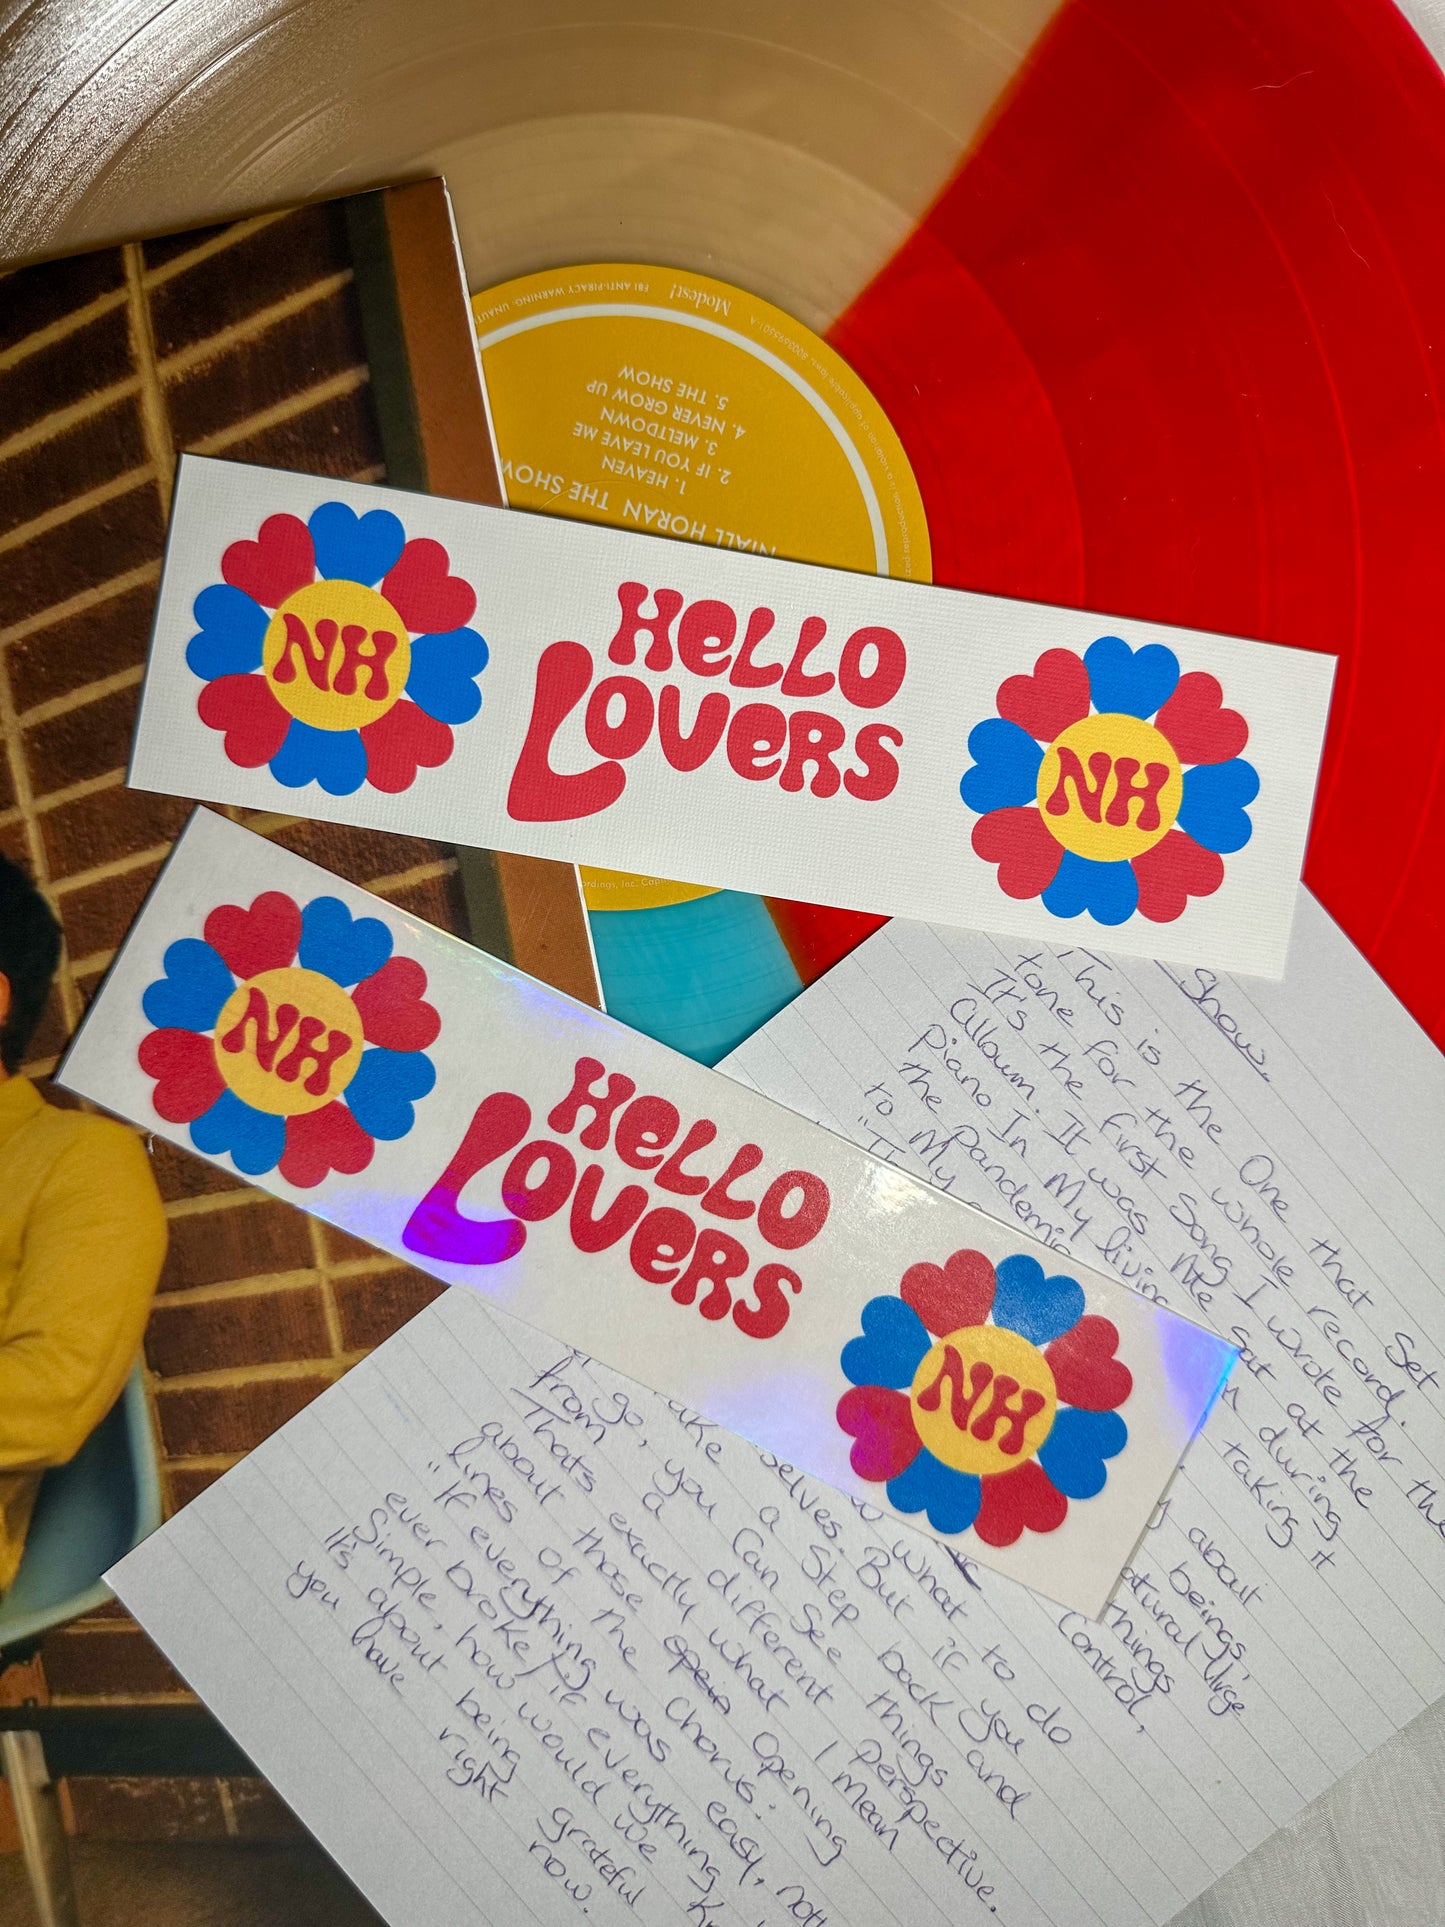 FBI ANTI-PIRACY WARNING: UNAUT
Modest!
of applicable laws. B003695501-A
NIALL HORAN THE SHOW
1. HEAVEN
2. IF YOU LEAVE ME
3. MELTDOWN
4. NEVER GROW UP
5. THE SHOW
NH
HELLO
LOVERS
NH
ordings, Inc. Capi
NH
HELLO
LOVERS
NH
Show.
This is the One that Set
tone for the whole record.
It's the first Song I wrote for the
album. It was
Piano In My living
the Pandemic
to My
sat at the
during
taking it
about
beings,
natural Urge
things
Control,
what to do
selves. But if you
go, you Can Step back and
from a different perspective.
See things
Thats exactly what I mean
about those opening
lines of the Chorus:
"If everything was easy, noth
ever broke, if everything
Simple, how would we
It's about being grateful
you have right now.